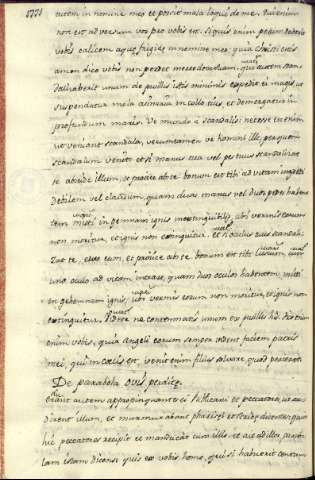 autem in nomine meo et possit male loqui de me. Qui enim
non est adversum vos pro vobis est. Si quis enim potum dederit
vobis calicem aquę frigidę in nomine meo quia Christi estis
amen dico vobis non perdet mercedem suam. qui autem scan
dalizaverit unum de pusillis istis minimis expedit ei magis ut
suspendatur mola asinaria in collo eius et demergatur in
profundum maris. Vę mundo a scandalis: necesse est enim
ut veniant scandala, verumtamen vę homini illi, per quem
scandalum venit et si manus tua vel pes tuus scandalizat
te abscide illum, et proiice abs te bonum est tibi ad vitam ingredi
debilem vel claudum, quam duas manus vel duos pedes haben
tem mitti in gehennam ignis inextinguibilis, ubi vermis eorum
non moritur, et ignis non extinguitur. et si oculus tuus scandali
zat te, erue eum, et proiice abs te bonum est tibi luscum, cum
uno oculo ad vitam, intrare, quam duos oculos habentem mitti
in gehennam ignis, ubi vermis eorum non moritur, et ignis non
extinguitur. Videte ne contemnatis unum ex pusillis his. Dico
enim vobis, quia angeli eorum semper vident faciem patris
mei, qui in cœlis est, venit enim filius salvare quod perierat.
De parabola ovis perdite
Erant autem appropinquantes ei Publicani et peccatores, ut au
dirent illum, et murmurabant pharisęi et scribę dicentes, quia
hic peccatores recipit et manducat cum illis. et ait ad illos parabo
lam istam dicens: quis ex vobis homo, qui si habuerit centum